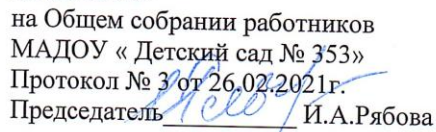 на Общем собрании работников
МАДОУ « Детский сад № 353»
Протокол № 3 от 26.02.2021г.
Председатель__________ И.А.Рябова